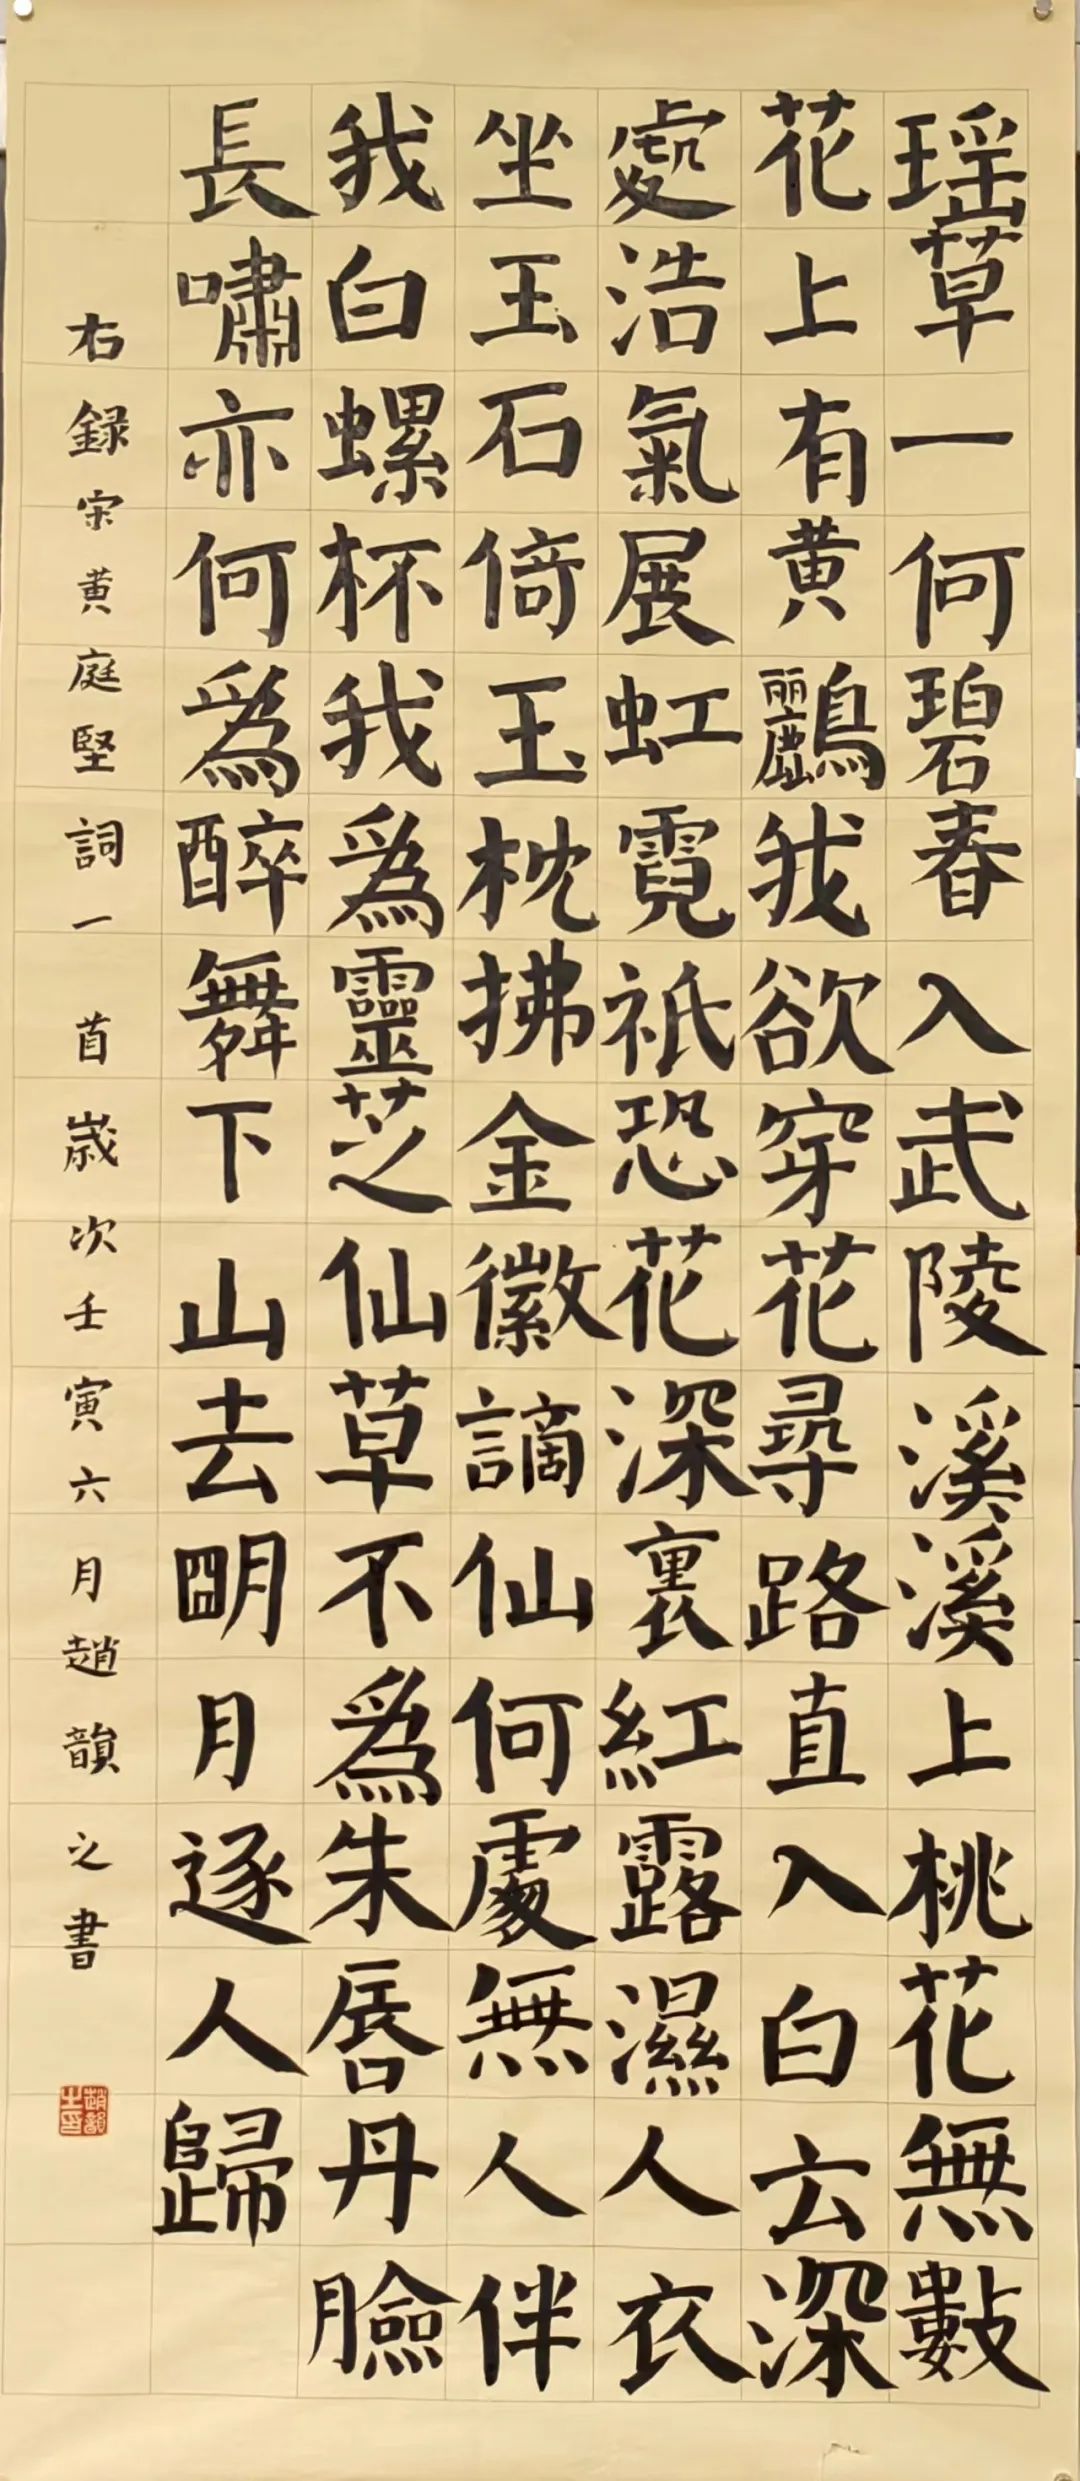 瑶草一何碧春入武陵溪溪上桃花無數
花上有黃鸝我欲穿花尋路直入白云深
處浩氣展虹霓祇恐花深裏紅露濕人衣
坐玉石倚玉枕拂金徽謫仙何處無人伴
我白螺杯我為靈芝仙草不為朱唇丹臉
長嘯亦何為醉舞下山去明月逐人歸
右録宋黄庭堅詞一首歲次壬寅六月趙韻之書
趙韻之印